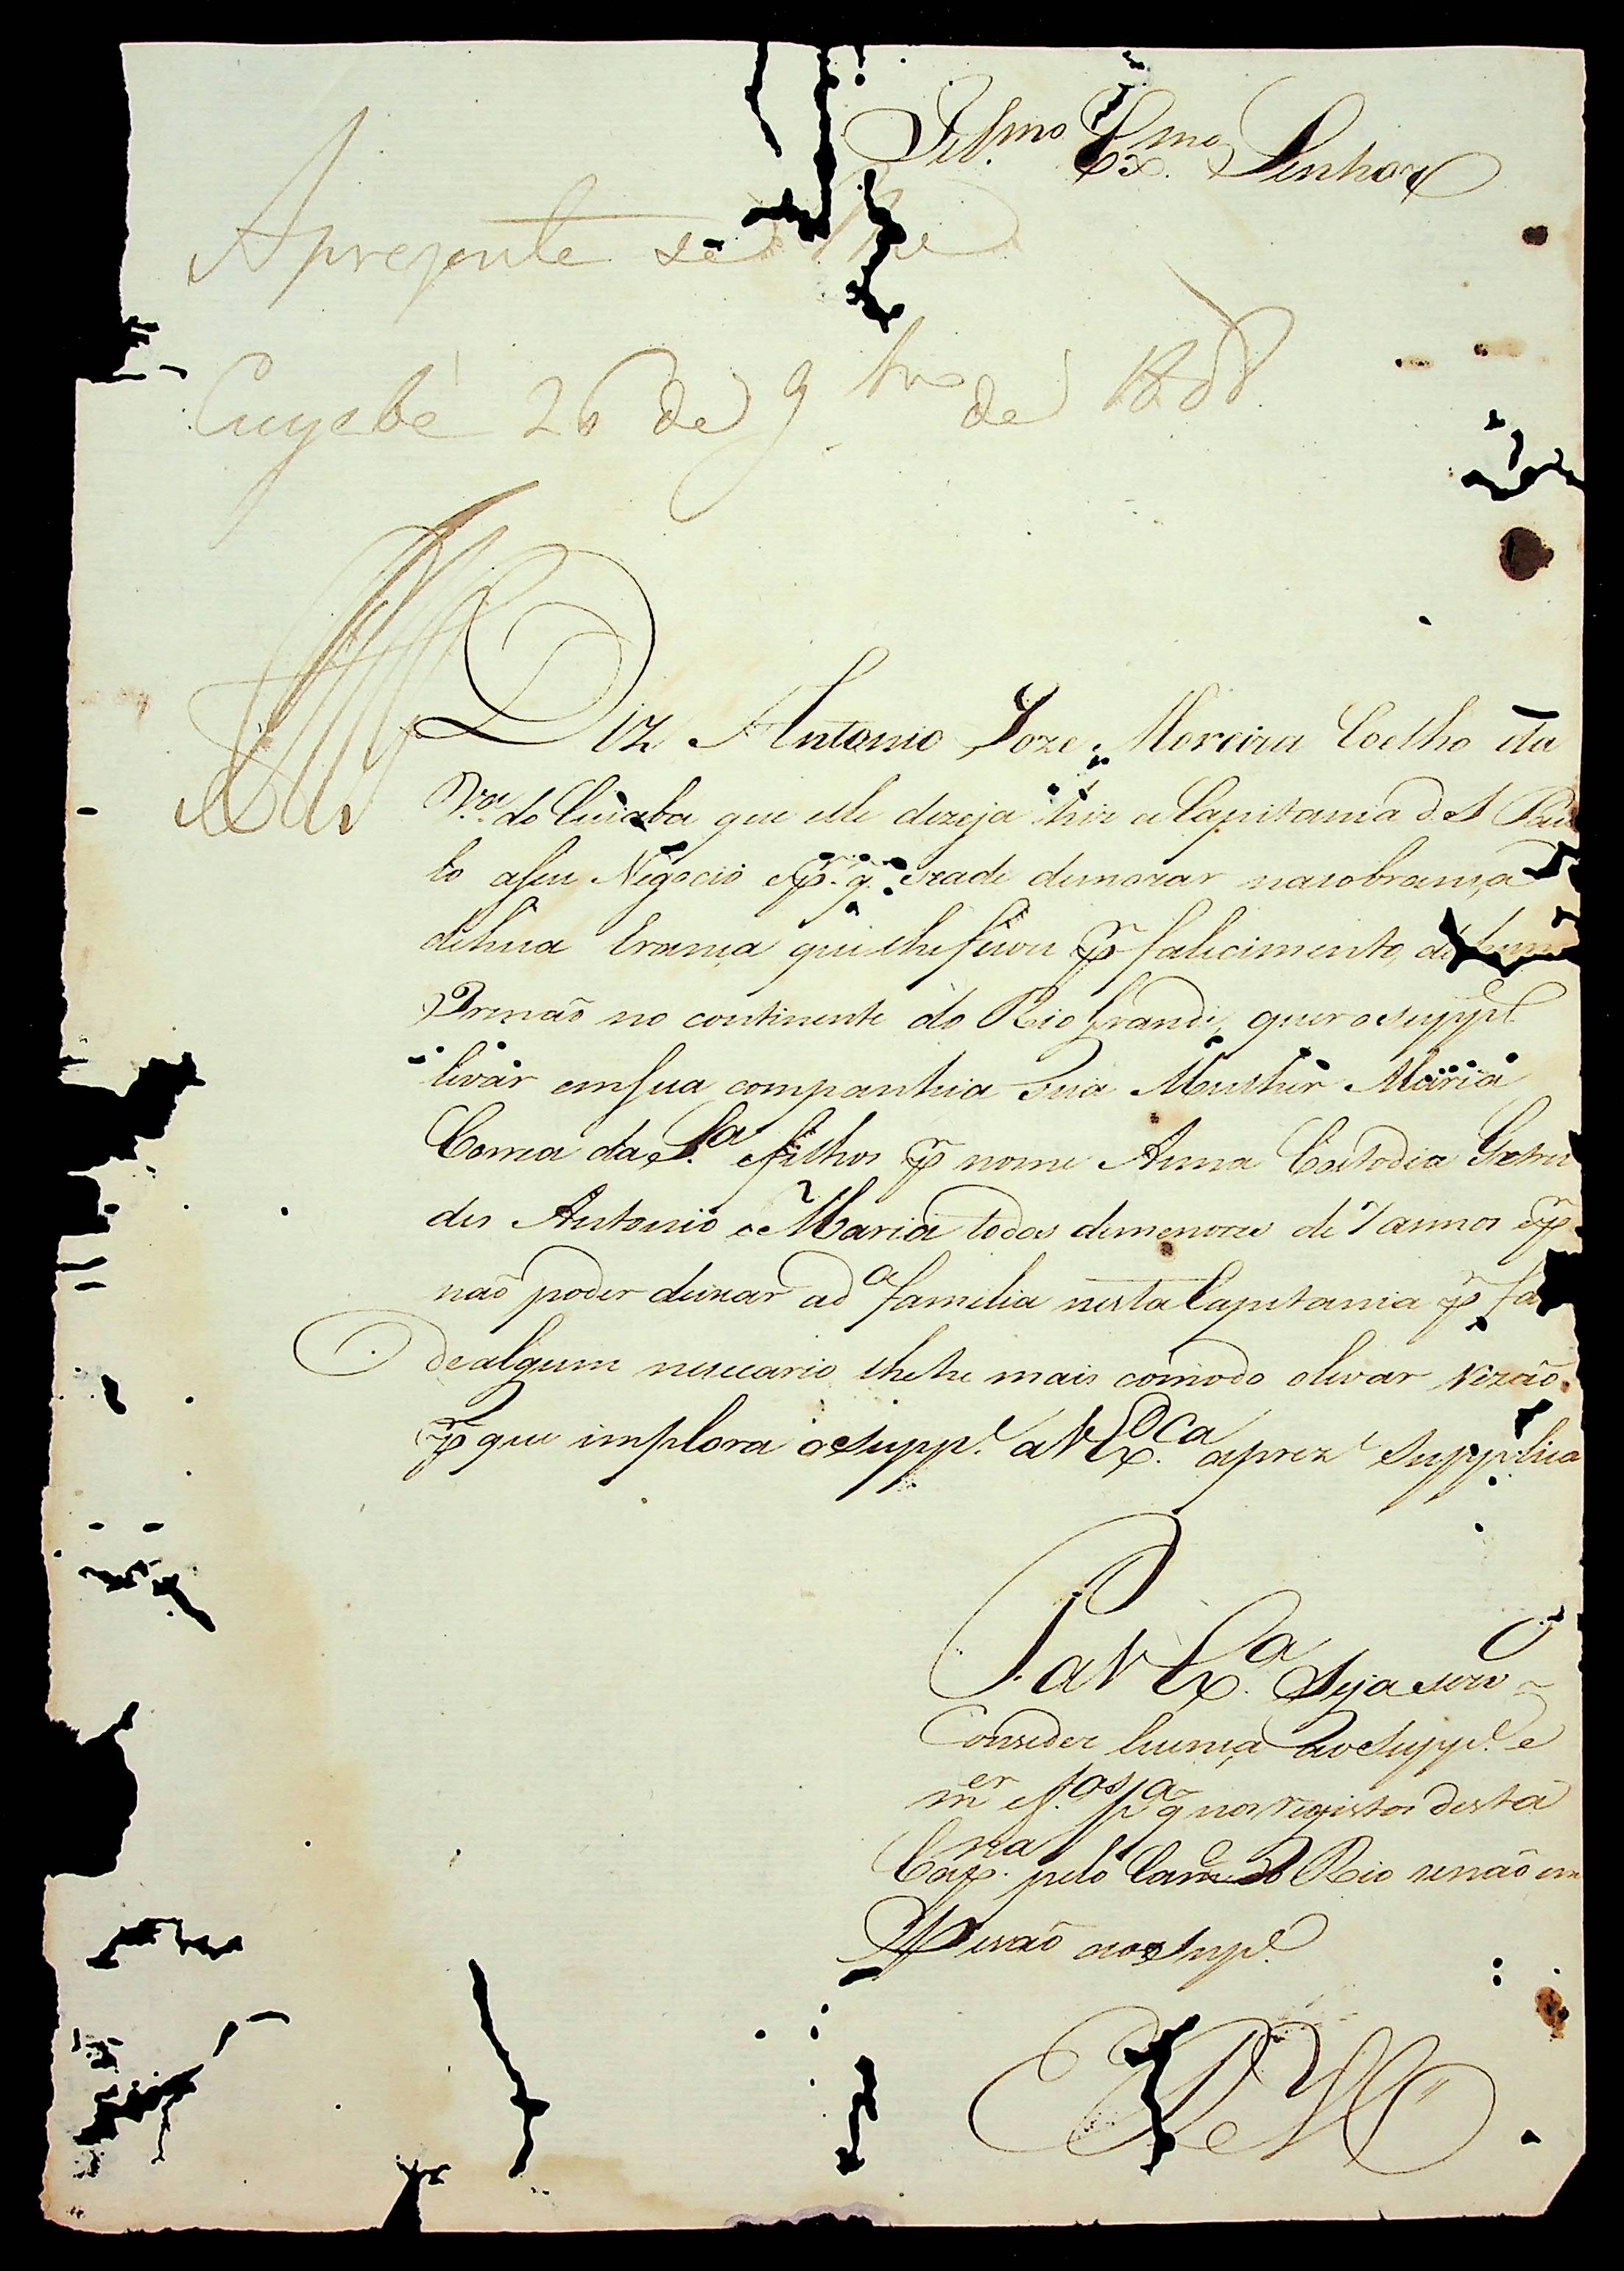 Jll.mo Ex.mo Senhor
Aprezente se
Cuyabá 26 de 9bro de 1808
Diz Antonio Joze Moreira Coelho da
V.a do Cuiaba que elle dezeja hir a Capitania d. S Pau
lo aseu Negocio e p.r q. seade demorar nacobrança
dehua Erança quilhe ficou p.r falicimento de hum
Irmaõ no continente do Rio Grande, quer o supp.e
levar emsua companhia sua Mulher Maria
Correa da S.a efilhos p.r nome Anna Custodia Getru
des Antonio e Maria todos demenores de 7 annos e p.r
naõ poder deixar a d.a familia nesta Capitania p.r fa
dealgum nececario lhehe mais comodo olevar
p.r que implora osupp.e a V Ex.ca aprez.e supplica
P a V Ex.a Seja servi
Conseder licença aosupp.e e
m.er e f.os p.a q nos registos desta
Cap.nia pelo Cam.o do Rio senaõ em
aosup.e
E R M